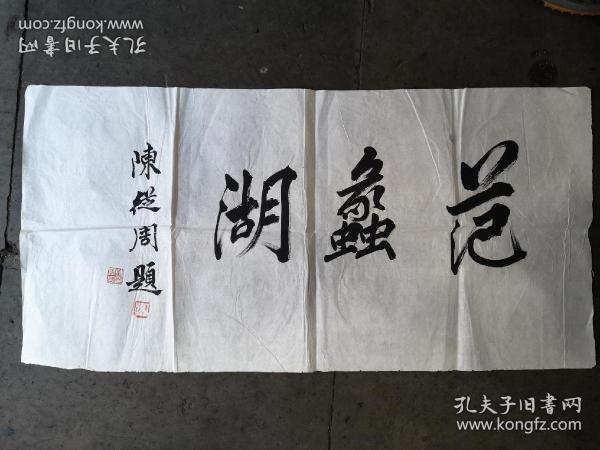 范蠡湖
陳從周題
孔夫子旧書网
www.kongfz.com
孔夫子旧書网
www.kongfz.com